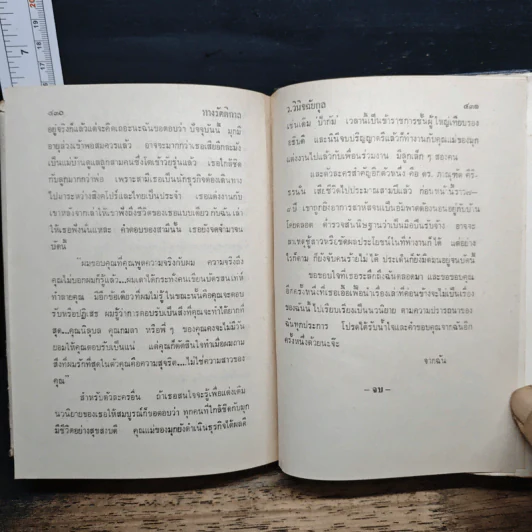 ๘๓๐ ทางรัตติกาล
อยู่จริงก็แล้วแต่จะคิดเถอะนะฉันขอตอบว่า ปัจจุบันนี้ มุกมี
อายุล่วงเข้าพ้นสมควรแล้ว อาจจะมากกว่าเธอเสียอีกละมัง
เป็นแม่บ้านดูแลลูกสามคนซึ่งโตเข้าวัยรุ่นแล้ว เธอใกล้ชิด
กับลูกมากกว่าพ่อ เพราะสามีเธอเป็นนักธุรกิจต้องเดินทาง
ไปมาระหว่างสิงคโปร์และไทยเป็นประจำ เธอแต่งงานกับ
เขาหลังจากเล่าให้เขาฟังถึงชีวิตของเธอแบบเดียวกับฉัน เล่า
ให้เธอฟังนั่นแหละ คำตอบของสามีนั้น เธอยังจดจำมาจน
บัดนี้
"ผมขอบคุณที่คุณพูดความจริงกับผม ความจริงถึง
คุณไม่บอกผมก็รู้แล้ว...
สุด...คุณนิลุบล คุณกมลา หรือพี่ ๆ ของคุณคงจะไม่มีวัน
ยอมให้คุณตอบรับเป็นแน่ แต่คุณก็ตัดสินใจทำเมื่อผมถาม
สิ่งที่ผมรักที่สุดในตัวคุณคือความสุจริต...ไม่ใช่ความสาวของ
คุณ"
สำหรับตัวละครอื่น ถ้าเธอสนใจจะรู้เพื่อแต่งเติม
นวนิยายของเธอให้สมบูรณ์ก็ขอตอบว่า ทุกคนที่ใกล้ชิดกับมุก
มีชีวิตอย่างสุขสงบดี คุณแม่ของมุกยังดำเนินธุรกิจได้ผลดี
ว.วินิจฉัยกุล ๘๓๑
เช่นเดิม ป้ากัมม์ เวลานี้เป็นข้าราชการชั้นผู้ใหญ่เทียบรอง
อธิบดี และนินีจบปริญญาตรีแล้วก็ทำงานกับคุณแม่ของมุก
แต่งงานไปแล้วกับเพื่อนร่วมงาน มีลูกเล็ก ๆ สองคน
และตัวละครสำคัญอีกตัวหนึ่ง คือ ดร. ภาณุพัต ศิริ-
ธรนัน
โดยตลอด ตำรวจสันนิษฐานว่าเป็นมือปืนรับจ้าง อาจจะ
ไรก็ตาม ก็ยังจับคนร้ายไม่ได้ ประเด็นก็ยังมืดมนอยู่จนบัดนี้
ขอขอบใจที่เธอระลึกถึงฉันตลอดมา และขอขอบคุณ
อีกครั้งหนึ่งที่เธอเอื้อเฟื้อนำเรื่องเล่าที่ค่อนข้างจะไม่เป็นเรื่อง
ของฉันนี้ ไปเรียบเรียงเป็นนวนิยาย ตามความปรารถนาของ
ฉันทุกประการ โปรดได้รับน้ำใจและคำขอบคุณจากฉันอีก
ครั้งหนึ่งด้วยนะจ๊ะ
จากฉัน
- จบ -
7